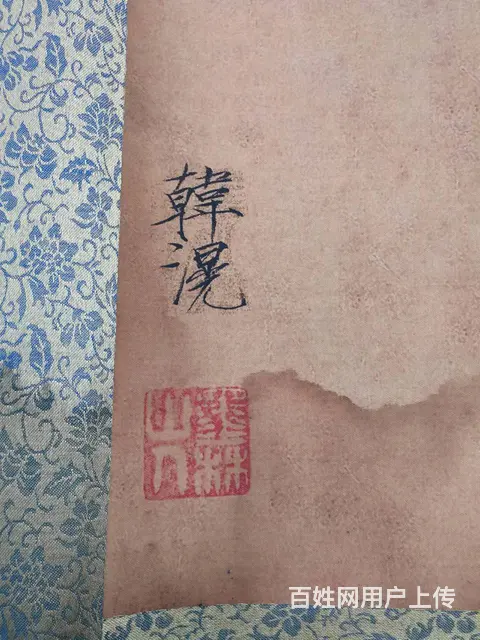 韓滉
百姓网用户上传